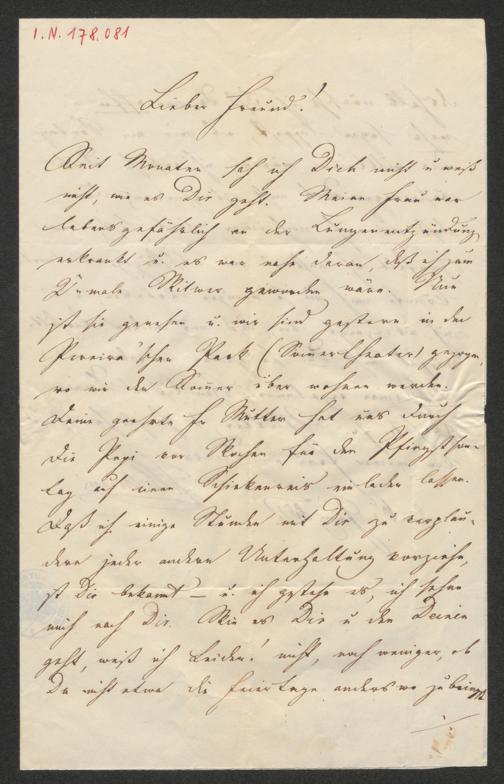 I. N. 178.081
Lieber Freund!
Seit Monaten sah ich Dich nicht u weiß
nicht, wie es Dir geht. Meine Frau war
lebensgefährlich an der Lungenentzündung
erkrankt u. es war nahe daran, daß ich zum
2ten male Witwer geworden wäre. Nun
ist sie genesen u. wir sind gestern in den
Pereira'schen Park (Sommertheater) gezogen,
wo wir den Sommer über wohnen werden.
Deine geehrte Fr Mutter hat uns durch
die Pepi vor Wochen für den Pfingstsonn-
tag auf einen Schinkenreis einladen lassen.
Daß ich einige Stunden mit Dir zu verplau-
dern jeder andern Unterhaltung vorziehe,
ist Dir bekannt – u. ich gestehe es, ich sehne
mich nach Dir. Wie es Dir u den Deinen
geht, weiß ich leider! nicht, noch weniger, ob
Du nicht etwa die Feiertage anderswo zubringst